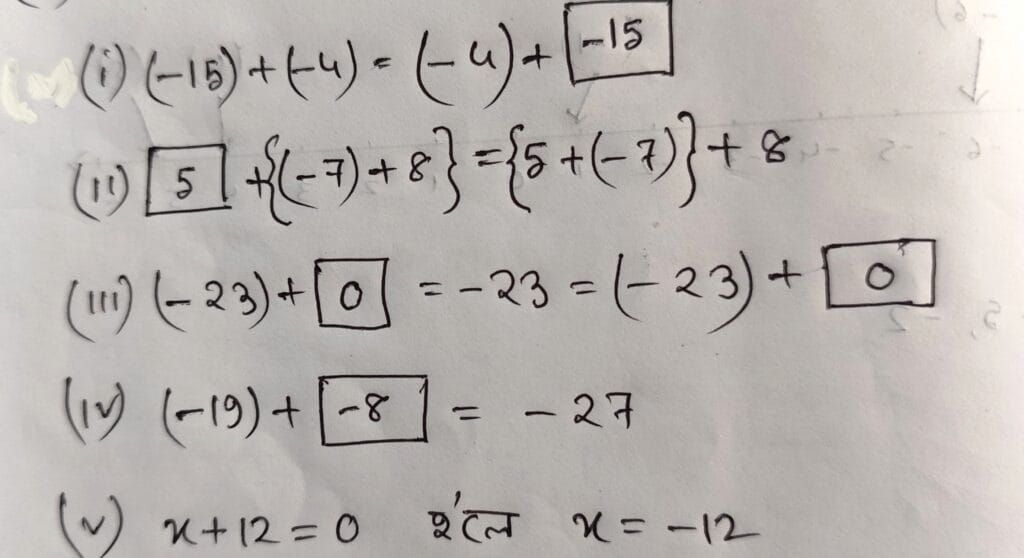 (i) (-15) + (-4) = (-4) + -15
(ii) 5 + {(-7) + 8} = {5 + (-7)} + 8
(iii) (-23) + 0 = -23 = (-23) + 0
(iv) (-19) + -8 = -27
(v) x + 12 = 0 হ'লে x = -12